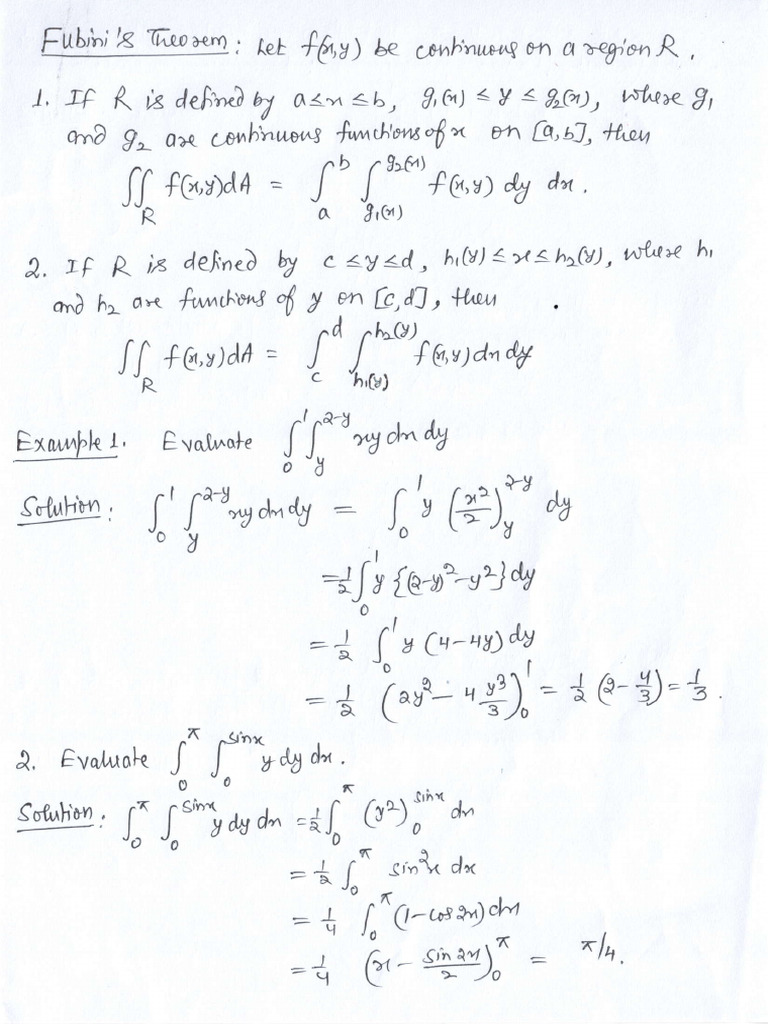 Fubini's Theorem: Let f(x,y) be continuous on a region R.
1. If R is defined by a≤x≤b, g₁(x) ≤ y ≤ g₂(x), where g₁
and g₂ are continuous functions of x on [a,b], then
∬_R f(x,y)dA = ∫_a^b ∫_{g₁(x)}^{g₂(x)} f(x,y) dy dx.
2. If R is defined by c≤y≤d, h₁(y) ≤ x ≤ h₂(y), where h₁
and h₂ are functions of y on [c,d], then
∬_R f(x,y)dA = ∫_c^d ∫_{h₁(y)}^{h₂(y)} f(x,y) dx dy
Example 1. Evaluate ∫_0^1 ∫_y^{2-y} xy dx dy
Solution: ∫_0^1 ∫_y^{2-y} xy dx dy = ∫_0^1 y (x²/2)_y^{2-y} dy
= 1/2 ∫_0^1 y {(2-y)² - y²} dy
= 1/2 ∫_0^1 y (4-4y) dy
= 1/2 (2y² - 4 y³/3)_0^1 = 1/2 (2 - 4/3) = 1/3.
2. Evaluate ∫_0^π ∫_0^{sinx} y dy dx.
Solution: ∫_0^π ∫_0^{sinx} y dy dx = 1/2 ∫_0^π (y²)_0^{sinx} dx
= 1/2 ∫_0^π sin²x dx
= 1/4 ∫_0^π (1-cos2x) dx
= 1/4 (x - sin2x/2)_0^π = π/4.